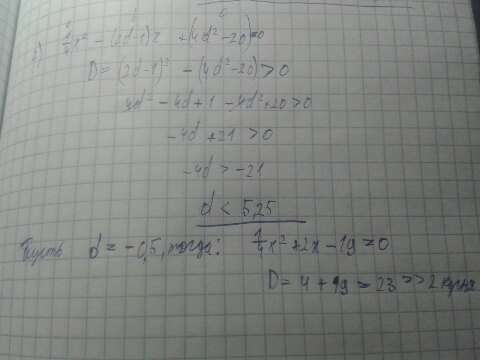 1) 1/4x² - (2d-1)x + (4d²-20)=0
D = (2d-1)² - (4d²-20) > 0
4d² - 4d + 1 - 4d² + 20 > 0
-4d + 21 > 0
-4d > -21
d < 5,25
Пусть d = -0,5, тогда: 1/4x² + 2x - 19 = 0
D = 4 + 19 = 23 => 2 корня